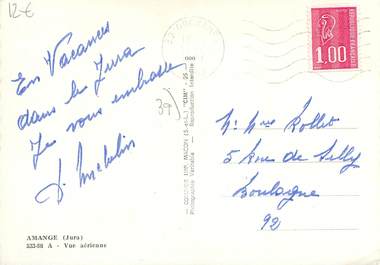 12€
En Vacances
dans le Jura
Je vous embrasse
39
AMANGE (Jura)
333-88 A - Vue aérienne
000
COMBIER IMP. MACON (S.-et-L.) "CIM"
Photographie Véritable - Reproduction Interdite
REPUBLIQUE FRANCAISE
1,00
Mr Mme Rollet
5 Rue de Silly
Boulogne
92